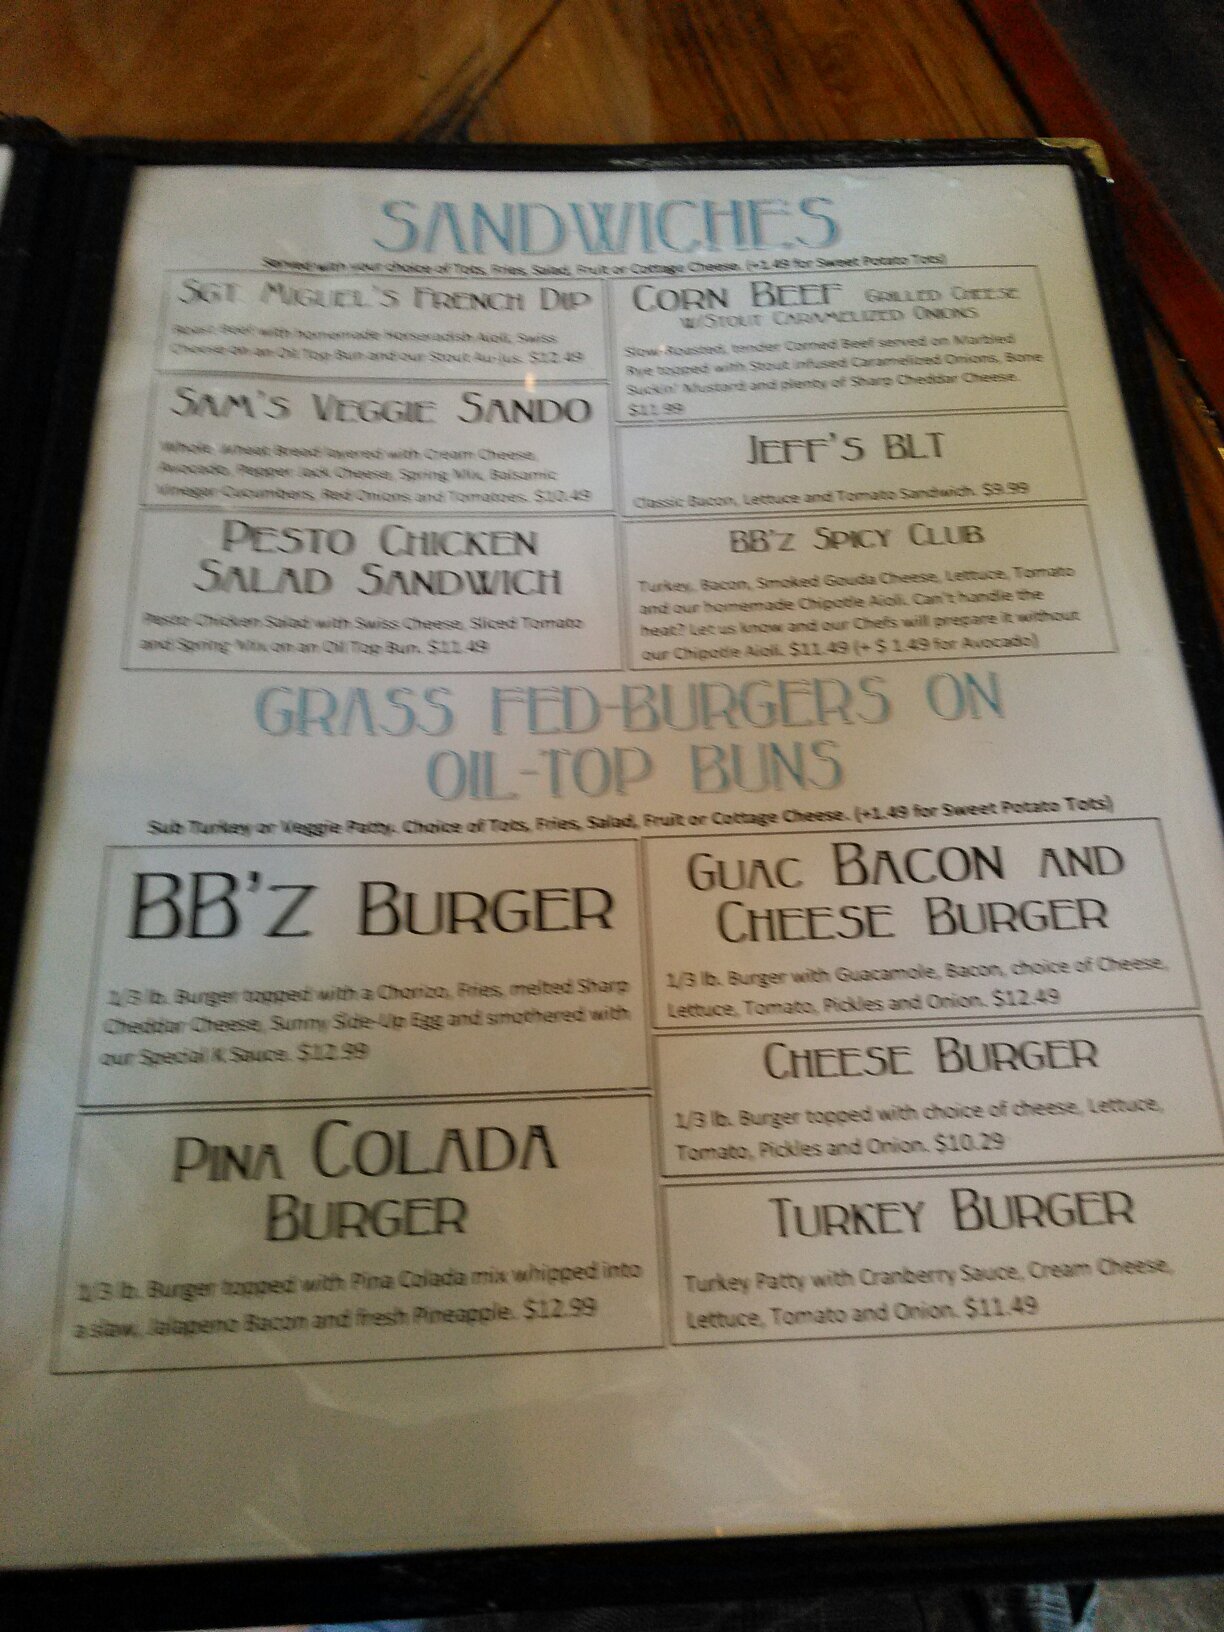 SANDWICHES
Served with your choice of Tots, Fries, Salad, Fruit or Cottage Cheese. (+1.49 for Sweet Potato Tots)
SGT. MIGUEL'S FRENCH DIP
Roast Beef with homemade Horseradish Aioli, Swiss
Cheese on an Oil Top Bun and our Stout Au-jus. $12.49
SAM'S VEGGIE SANDO
Whole Wheat Bread layered with Cream Cheese,
Avocado, Pepper Jack Cheese, Spring Mix, Balsamic
Vinegar Cucumbers, Red Onions and Tomatoes. $10.49
PESTO CHICKEN
SALAD SANDWICH
Pesto Chicken Salad with Swiss Cheese, Sliced Tomato
and Spring Mix on an Oil Top Bun. $11.49
CORN BEEF GRILLED CHEESE
W/STOUT CARAMELIZED ONIONS
Slow Roasted, tender Corned Beef served on Marbled
Rye topped with Stout infused Caramelized Onions, Bone
Suckin' Mustard and plenty of Sharp Cheddar Cheese.
$11.99
JEFF'S BLT
Classic Bacon, Lettuce and Tomato Sandwich. $9.99
BB'Z SPICY CLUB
Turkey, Bacon, Smoked Gouda Cheese, Lettuce, Tomato
and our homemade Chipotle Aioli. Can't handle the
heat? Let us know and our Chefs will prepare it without
our Chipotle Aioli. $11.49 (+ $ 1.49 for Avocado)
GRASS FED-BURGERS ON
OIL-TOP BUNS
Sub Turkey or Veggie Patty. Choice of Tots, Fries, Salad, Fruit or Cottage Cheese. (+1.49 for Sweet Potato Tots)
BB'Z BURGER
1/3 lb. Burger topped with a Chorizo, Fries, melted Sharp
Cheddar Cheese, Sunny Side-Up Egg and smothered with
our Special K Sauce. $12.99
PINA COLADA
BURGER
1/3 lb. Burger topped with Pina Colada mix whipped into
a slaw, Jalapeno Bacon and fresh Pineapple. $12.99
GUAC BACON AND
CHEESE BURGER
1/3 lb. Burger with Guacamole, Bacon, choice of Cheese,
Lettuce, Tomato, Pickles and Onion. $12.49
CHEESE BURGER
1/3 lb. Burger topped with choice of cheese, Lettuce,
Tomato, Pickles and Onion. $10.29
TURKEY BURGER
Turkey Patty with Cranberry Sauce, Cream Cheese,
Lettuce, Tomato and Onion. $11.49